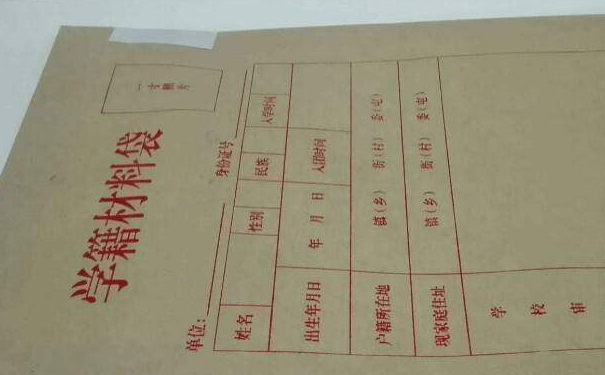 一寸照片
学籍材料袋
单位： 身份证号
姓名 性别 民族 入学时间
出生年月日 年 月 日 入团时间
户籍所在地 镇（乡） 街（村） 委（屯）
现家庭住址 镇（乡） 街（村） 委（屯）
学校审